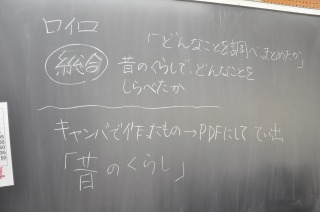 ロイロ
「どんなことを調べまとめたか」
総合 昔のくらしで、どんなことを
しらべたか
キャンバで作ったもの→PDFにして てい出
「昔のくらし」